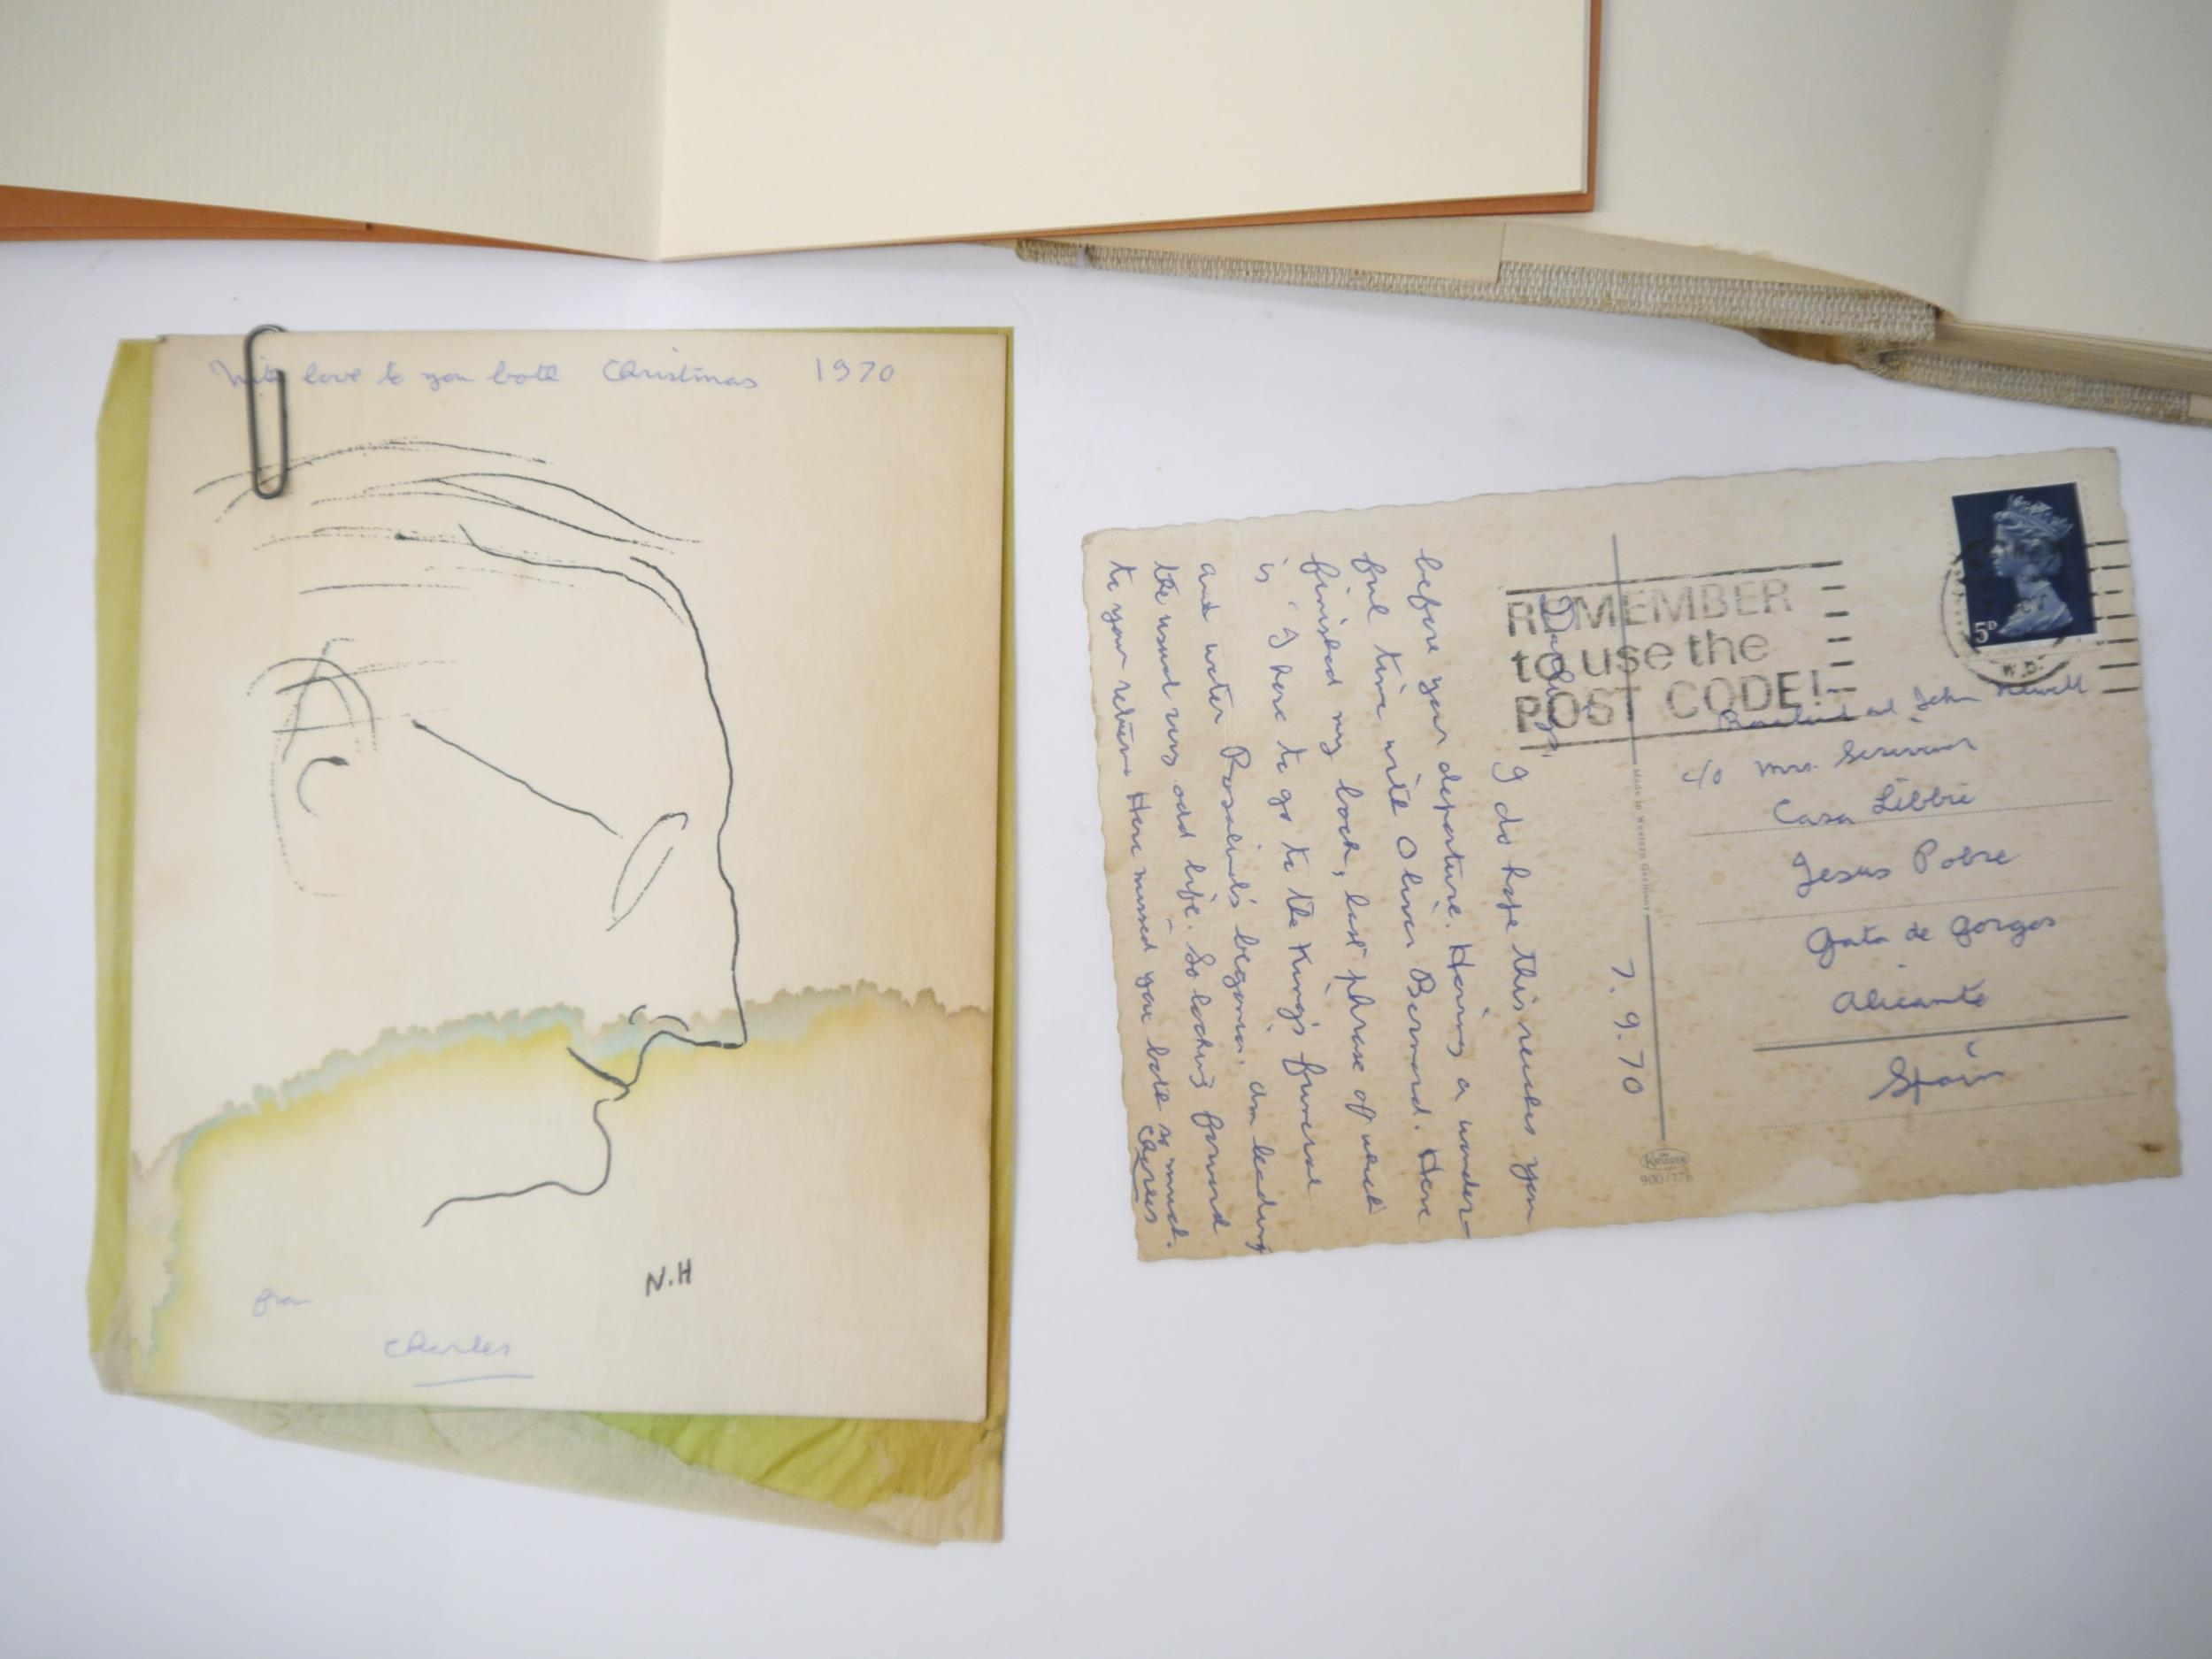 With love to you both Christmas 1970
N.H
from
Charles
Darlings,
I do hope this reaches you
before your departure. Having a wonder-
ful time with Oliver Bernard. Have
finished my book, last phrase of which
is "I have to go to the King's funeral
and water Rosalind's begonia. Am leading
the usual very odd life. So looking forward
to your return Have missed you both so much.
Charles
7.9.70
REMEMBER
to use the
POST CODE!
5D
W.D.
Rosalind and John Newell
c/o Mrs.
Casa Libbie
Jesus Pobre
Gata de Gorgos
Alicante
Spain
Made in Western Germany
KRÜGER
900/176